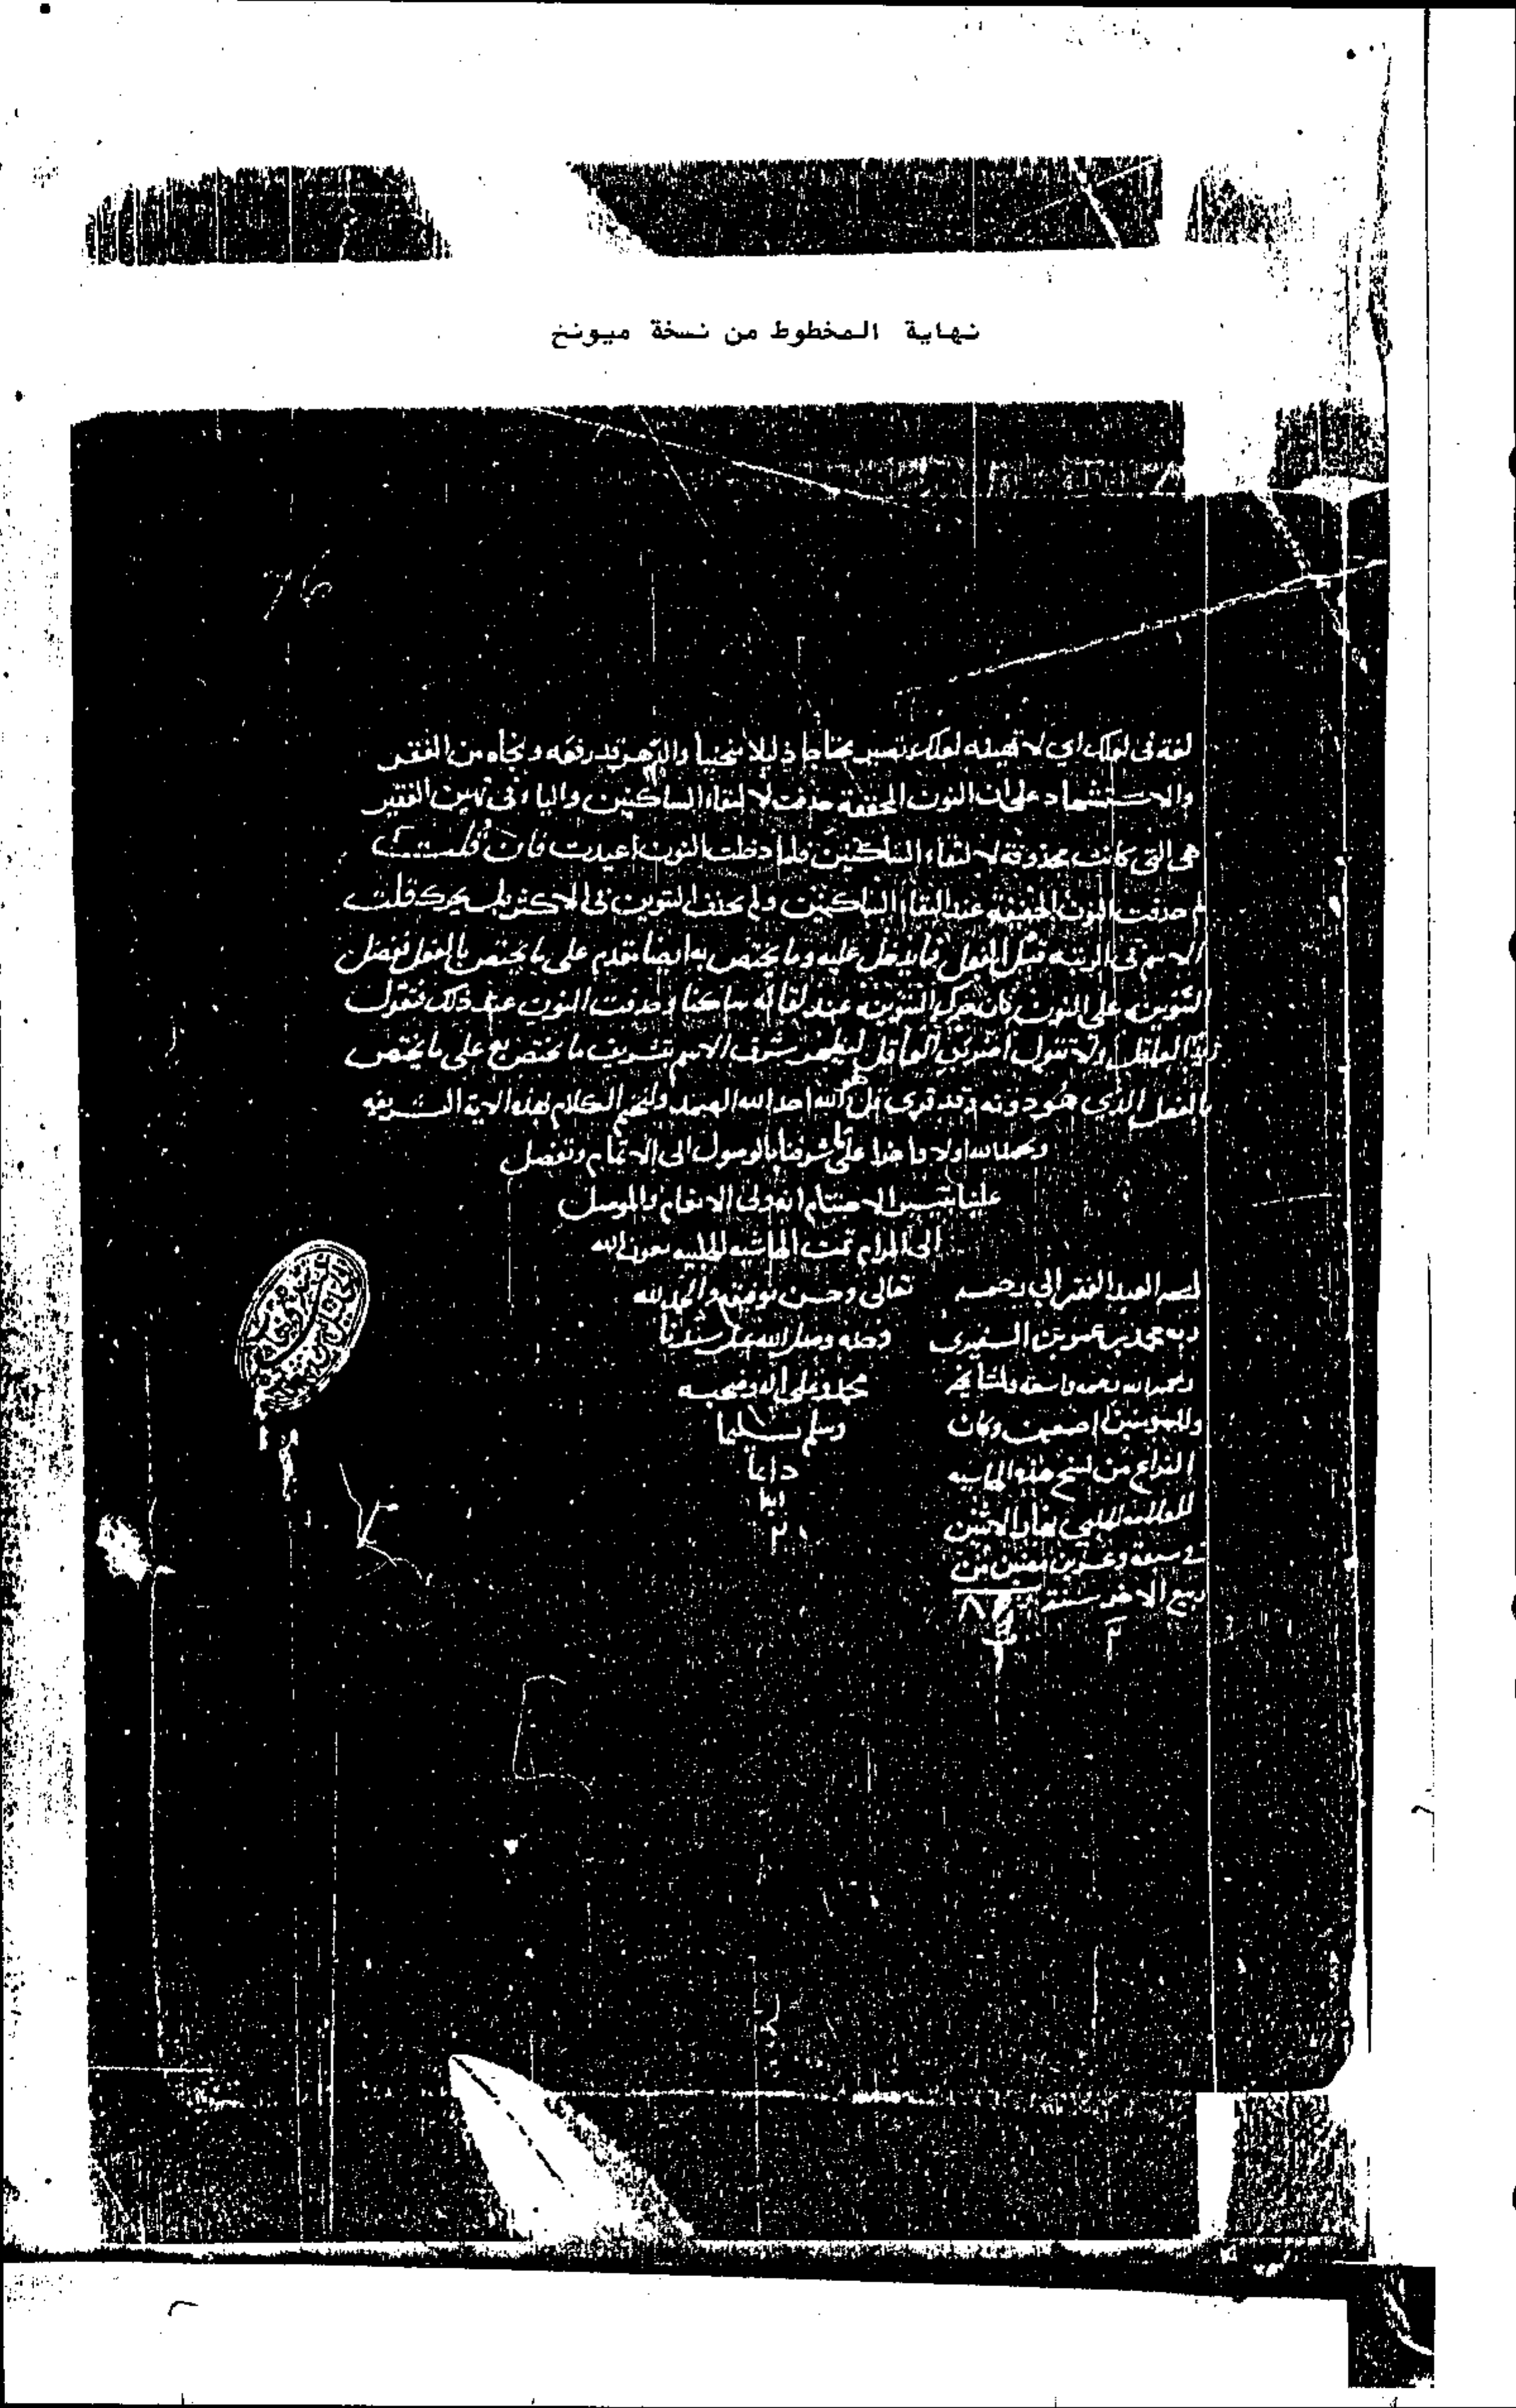 نهاية المخطوط من نسخة ميونخ
76
لغة في لعلك اي لا تهينه لعلك تصير محتاجا ذليلا منحنيا والدهر قد رفعه ونجاه من الفقر
والاستشهاد على ان النون المخففة حذفت لالتقاء الساكنين والياء في تهين الفقير
هي التي كانت محذوفة لالتقاء الساكنين فلما دخلت النون اعيدت فان قلت
لم حذفت النون الخفيفة عند التقاء الساكنين ولم يحذف التنوين في الاكثر بل يحرك قلت
الاسم في الرتبة قبل الفعل فما يدخل عليه وما يختص به ايضا تقدم على ما يختص بالفعل ففضل
التنوين على النون بان حرك التنوين عند لقائه ساكنا وحذفت النون عند ذلك فتقول
العاقل ولا تقول اضربن العاقل ليظهر شرف الاسم بتشريف ما يختص به على ما يختص
بالفعل الذي هو دونه وقد قرئ قل هو الله احد الله الصمد ولنختم الكلام بهذه الاية الشريفة
ونحمد الله اولا واخرا على شرفنا بالوصول الى الاتمام وتفضل
علينا بتيسير الاختتام انه ولي الانعام والموصل
الى المرام تمت الحاشية الحلبية بعون الله
تعالى وحسن توفيقه والحمد لله
وحده وصلى الله على سيدنا
محمد وعلى اله وصحبه
وسلم تسليما
دائما
ابدا
العبد الفقير الى رحمة
ربه محمد بن عمر بن السفيري
ولمشايخه
وللمومنين اجمعين وكان
الفراغ من نسخ هذه الحاشية
للعلامة الحلبي نهار الاثنين
في سبعة وعشرين مضين من
ربيع الاخر سنة